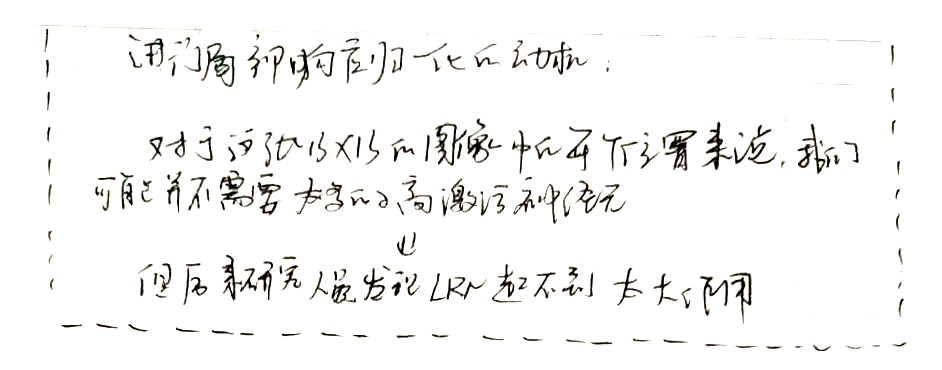 进行局部响应归一化的动机:
对于这张13×13的图像中的每个位置来说,我们
可能并不需要太多的高激活神经元
⇓
但后来研究人员发现LRN起不到太大作用